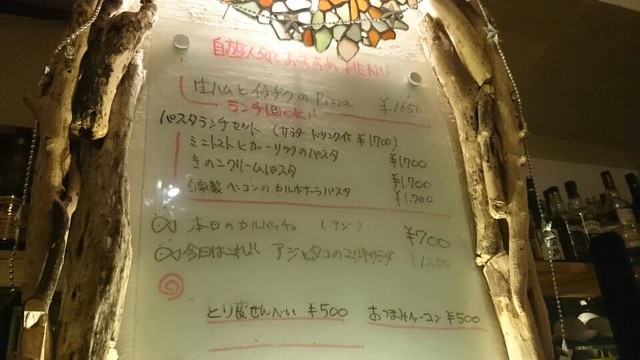 おすすめ MENU
生ハムとイチヂクのPizza ¥1650
ランチもok!!
パスタランチセット (サラダ・ドリンク付 ¥1700)
ミニトマトとガーリックのパスタ ¥1700
きのこクリームパスタ ¥1.700
自家製 ベーコンのカルボナーラパスタ ¥1.700
本日のカルパッチョ (アジ) ¥700
今日はこれ!! アジとタコのマリネサラダ ¥1200
とり皮せんべい ¥500 おつまみベーコン ¥500